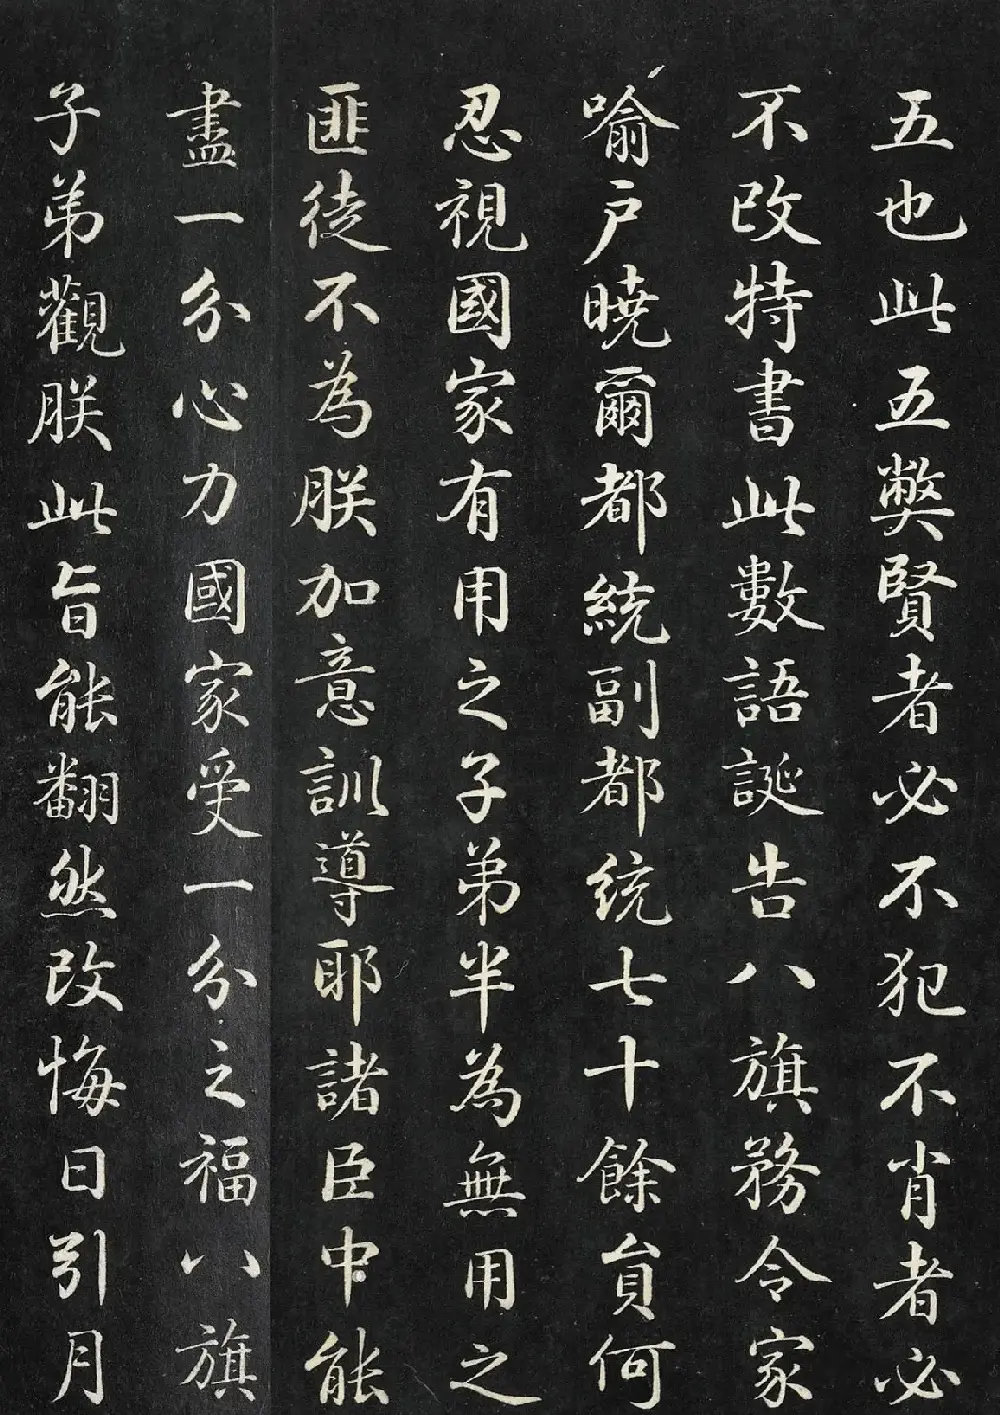 五也此五弊賢者必不犯不肖者必
不改特書此數語誕告八旗務令家
喻戶曉爾都統副都統七十餘員何
忍視國家有用之子弟半為無用之
匪徒不為朕加意訓導耶諸臣中能
盡一分心力國家受一分之福八旗
子弟觀朕此旨能翻然改悔日引月